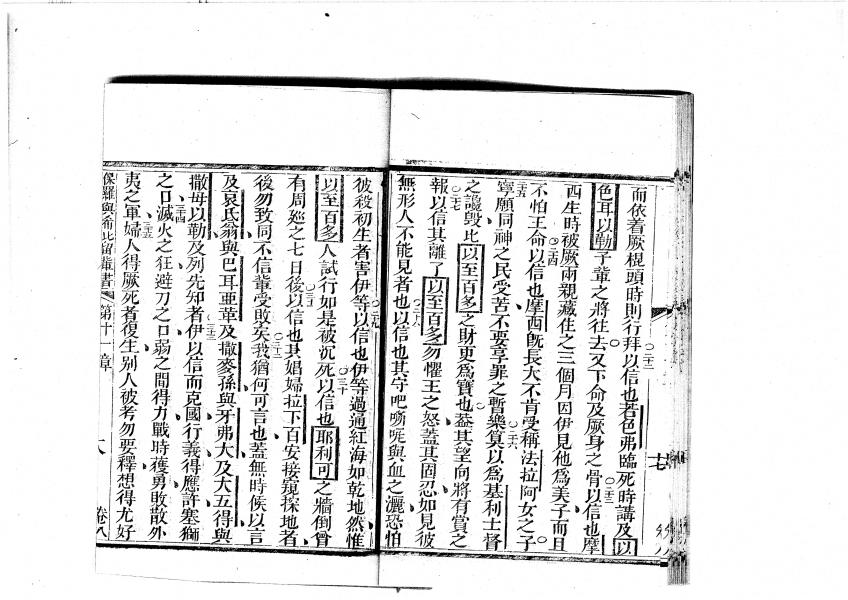 而依着厥棍頭時則行拜以信也○二十二若色弗臨死時講及以
色耳以勒子輩之將往去又下命及厥身之骨以信也○二十三摩
西生時被厥兩親藏住之三個月因伊見他為美子而且
不怕王命以信也○二十四摩西既長大不肯受稱法拉阿女之子○
二十五寧願同神之民受苦不要享罪之暫樂○二十六算以為基利士督
之譏毀比以至百多之財更為寶也蓋其望向將有賞之
報○二十七以信其離了以至百多勿懼王之怒蓋其固忍如見彼
無形人不能見者也○二十八以信也其守吧嘶㗑與血之灑恐怕
彼殺初生者害伊等○二十九以信也伊等過通紅海如乾地然惟
以至百多人試行如是被沉死○三十以信也耶利可之牆倒曾
有周廵之七日後○三十一以信也其娼婦拉下百安接窺探地者
後勿致同不信輩受敗矣○三十二我猶何可言也蓋無時候以言
及哀氏翁與巴耳亜革及撒麥孫與牙弗大及大五得與
撒母以勒及列先知者○三十三伊以信而克國行義得應許塞獅
之口○三十四滅火之狂避刀之口弱之間得力戰時獲勇敗散外
夷之軍○三十五婦人得厥死者復生別人被考勿要釋想得尤好
保羅與希比留輩書 第十一章 十八 卷八